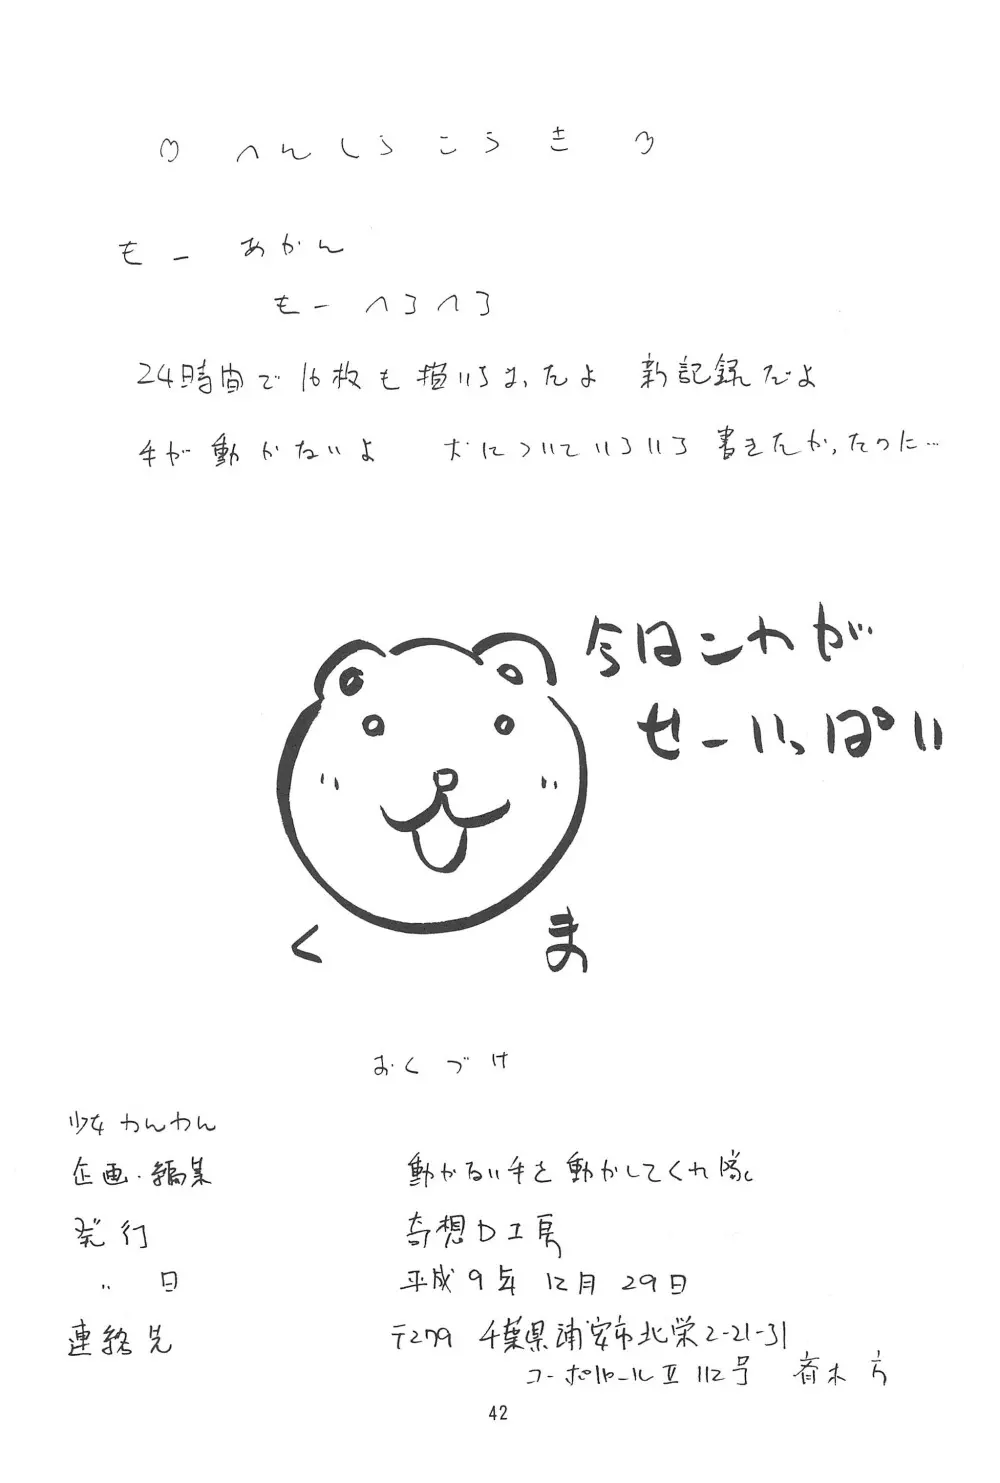 ♡ へんしうこうき ♡
もー あかん
もー へろへろ
24時間で16枚も描いちまったよ 新記録だよ
手が動かないよ 犬についていろいろ書きたかったのに…
今はこれが
せーいっぱい
くま
おくづけ
少女わんわん
企画・編集 動かない手を動かしてくれ隊
発行 奇想D工房
〃 日 平成9年12月29日
連絡先 〒279 千葉県浦安市北栄2-21-31
Ⅱ 112号 方
42